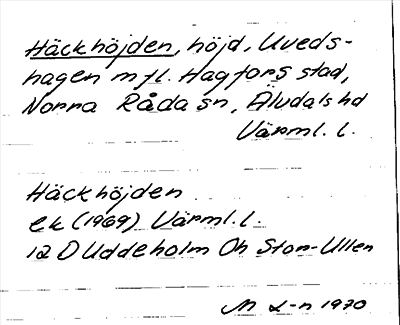 Häckhöjden, höjd, Uveds-
hagen m fl. Hagfors stad,
Norra Råda sn, Älvdals hd
Värml. l.
Häckhöjden
ek (1969) Värml. l.
12 D Uddeholm Oh Stor-Ullen
1970